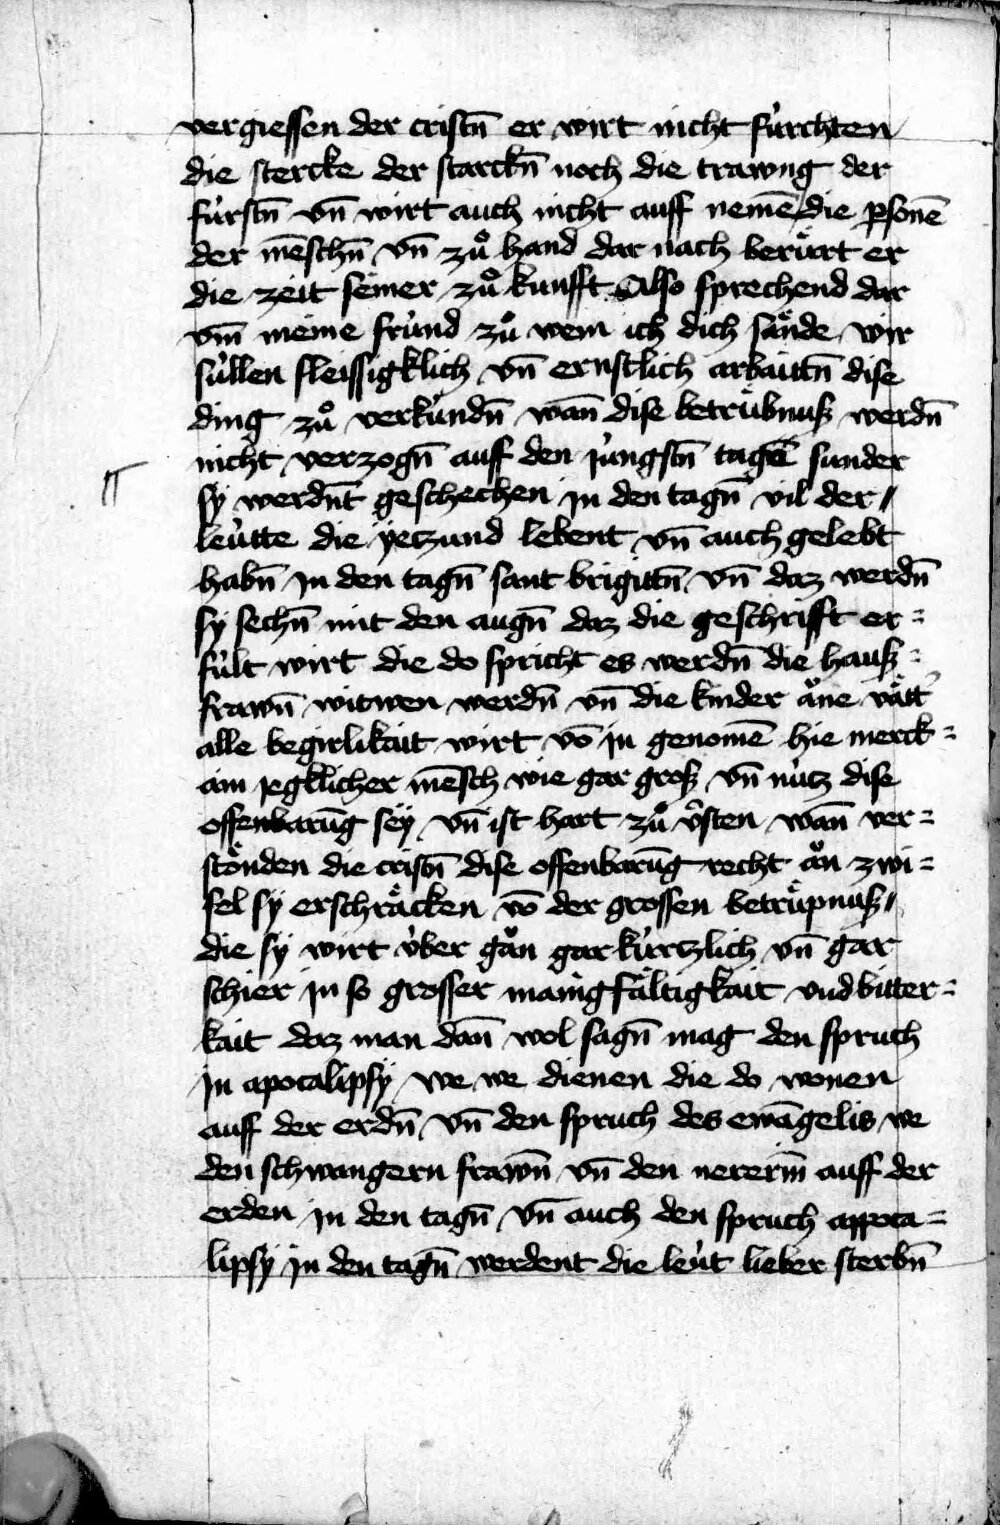 vergiessen der cristn̄ er wirt nicht fürchten
die stercke der starckn̄ noch die trawng der
fürstn̄ vn̄ wirt auch nicht auff nemē die psonē
der mēschn̄ vn̄ zů hand dar nach berürt er
die zeit seiner zů kunfft Also sprechend dar
vm̄ meine fründ zů wem ich dich sände wir
süllen fleissigklich vn̄ ernstlich arbaittn̄ dise
ding zů verkündn̄ wan̄ dise betrübnuß werdn̄
nicht verzogn̄ auff den jüngstn̄ tagē sunder
sy werdn̄t geschechen jn den tagn̄ vil der
leütte die yetzund lebent vn̄ auch gelebt
habn̄ jn den tagn̄ sant brigittn̄ vn̄ daz werdn̄
sy sechn̄ mit den augn̄ daz die geschrifft er=
fült wirt die do spricht es werdn̄ die hauß=
frawn̄ witwen werdn̄ vn̄ die kinder åne vätt'
alle begirlikait wirt vō jn genomē hie merck=
ain jegklicher mēsch wie gar groß vn̄ nütz dise
offenbarūg seÿ vn̄ ist hart zů v̂sten wan̄ ver=
stönden die cristn̄ dise offenbarūg recht ån zwi=
fel sy erschräcken vō der grossen betrüpnuß
die sy wirt über gån gar kürtzlich vn̄ gar
schier jn so grosser manigfältigkait vnd bitter=
kait daz man dan̄ wol sagn̄ mag den spruch
jn apocalipsy we we dienen die do wonen
auff der erdn̄ vn̄ den spruch des ewāgelis we
den schwangern frawn̄ vn̄ den nererin̄ auff der
erden jn den tagn̄ vn̄ auch den spruch appoca=
lipsy jn den tagn̄ werdent die leüt lieber sterbn̄